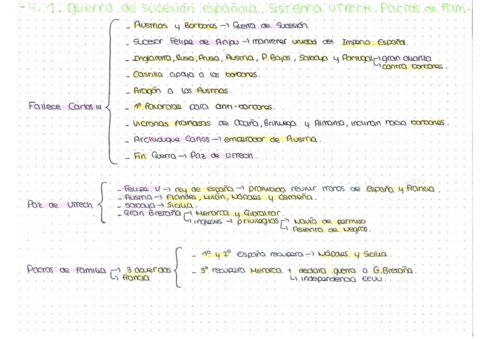 - 4.1. Guerra de Sucesión española. Sistema Utrech. Pactos de Fam-
- Austrias y Borbones → Guerra de Sucesión
- Sucesor Felipe de Anjou → mantener unidad del Imperio Español.
- Inglaterra, Rusia, Prusia, Austria, P. Bajos, Saboya y Portugal → gran alianza
↳ contra borbones.
- Castilla apoya a los borbones.
- Aragón a los Austrias.
Fallece Carlos III
- 1º Favorable para anti-borbones.
- Victorias de Brihuega y Almansa, hacia borbones.
- Archiduque Carlos → emperador de Austria.
- Fin Guerra → Paz de Utrech.
- Felipe V → rey de España → reunir tronos de España y Francia.
- Austria → Flandes, Milán, Nápoles y Cerdeña.
Paz de Utrech
- Saboya → Sicilia.
- Gran Bretaña → Menorca y Gibraltar
↳ ingleses → privilegios → Navío de permiso
↳ Asiento de Negros.
- 1º y 2º España recupera → Nápoles y Sicilia
Pactos de Familia → 3 acuerdos
↳ Francia
- 3º recupera Menorca + declara guerra a G. Bretaña
↳ independencia EEUU.